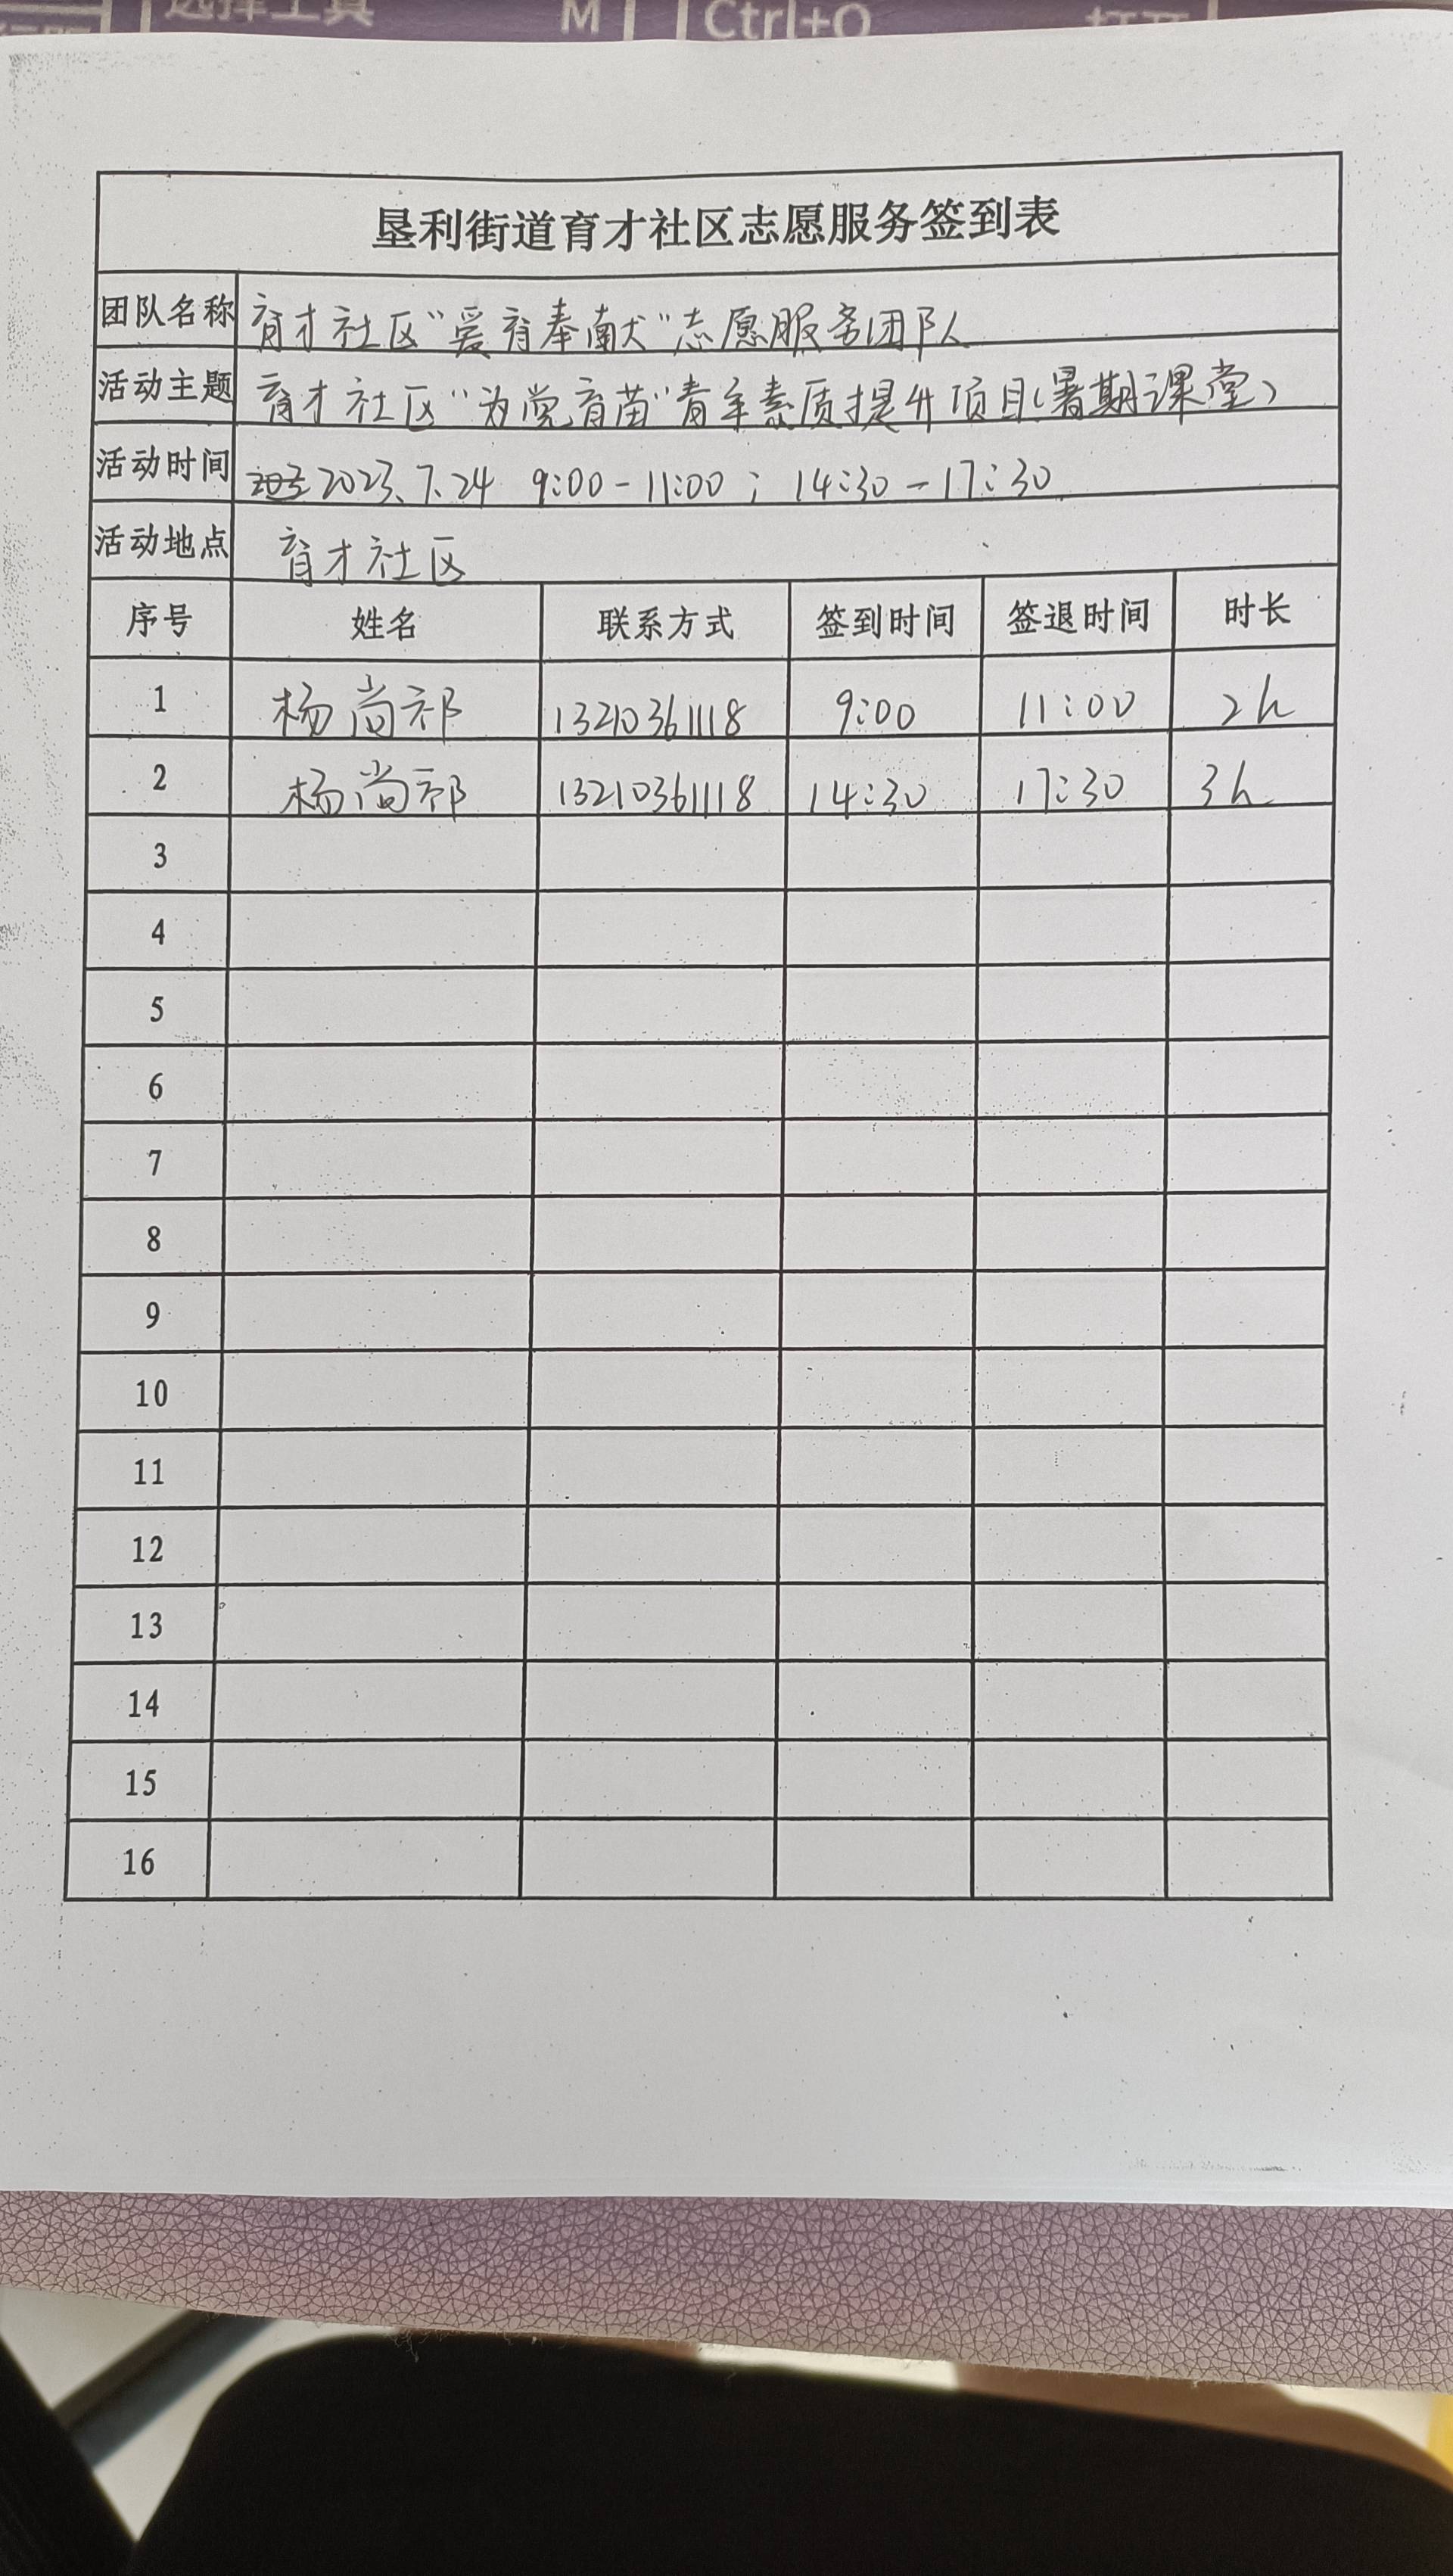 选择工具 M Ctrl+O 打开
垦利街道育才社区志愿服务签到表
团队名称 育才社区“爱育奉献”志愿服务团队
活动主题 育才社区“为党育苗”青年素质提升项目(暑期课堂)
活动时间 2023.7.24 9:00-11:00; 14:30-17:30
活动地点 育才社区
序号 姓名 联系方式 签到时间 签退时间 时长
1 杨尚祁 13210361118 9:00 11:00 2h
2 杨尚祁 13210361118 14:30 17:30 3h
3
4
5
6
7
8
9
10
11
12
13
14
15
16